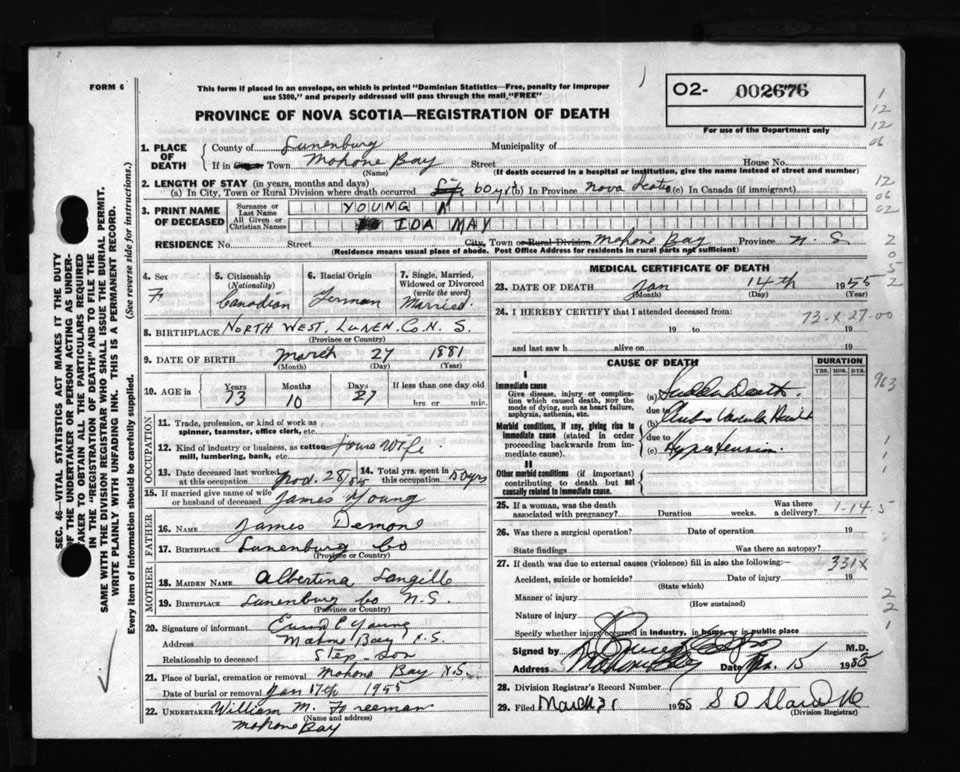 FORM 6
This form if placed in an envelope, on which is printed "Dominion Statistics—Free, penalty for improper
use $300," and properly addressed will pass through the mail "FREE"
PROVINCE OF NOVA SCOTIA—REGISTRATION OF DEATH
02- 002676
For use of the Department only
SEC. 46—VITAL STATISTICS ACT MAKES IT THE DUTY
OF THE UNDERTAKER OR PERSON ACTING AS UNDER-
TAKER TO OBTAIN ALL THE PARTICULARS REQUIRED
IN THE "REGISTRATION OF DEATH" AND TO FILE THE
SAME WITH THE DIVISION REGISTRAR WHO SHALL ISSUE THE BURIAL PERMIT.
WRITE PLAINLY WITH UNFADING INK. THIS IS A PERMANENT RECORD.
Every item of information should be carefully supplied. (See reverse side for instructions.)
1. PLACE OF DEATH
County of Lunenburg Municipality of
If in Town Mahone Bay Street House No.
(Name) (If death occurred in a hospital or institution, give the name instead of street and number)
2. LENGTH OF STAY (in years, months and days)
(a) In City, Town or Rural Division where death occurred 60 yrs (b) In Province Nova Scotia (c) In Canada (if immigrant)
3. PRINT NAME OF DECEASED
Surname or Last Name YOUNG
All Given or Christian Names IDA MAY
RESIDENCE No. Street City, Town or Rural Division Mahone Bay Province N. S.
(Residence means usual place of abode. Post Office Address for residents in rural parts not sufficient)
4. Sex F
5. Citizenship (Nationality) Canadian
6. Racial Origin German
7. Single, Married, Widowed or Divorced (write the word) Married.
8. BIRTHPLACE NORTH WEST, LUNEN. CO. N. S.
(Province or Country)
9. DATE OF BIRTH March 27 1881
(Month) (Day) (Year)
10. AGE in Years 73 Months 10 Days 27 If less than one day old
hrs. or min.
OCCUPATION
11. Trade, profession, or kind of work as
spinner, teamster, office clerk, etc.
12. Kind of industry or business, as cotton House Wife
mill, lumbering, bank, etc.
13. Date deceased last worked at this occupation
14. Total yrs. spent in this occupation 50 yrs
15. If married give name of wife
or husband of deceased James Young
FATHER
16. NAME James Demone
17. BIRTHPLACE Lunenburg Co
(Province or Country)
MOTHER
18. MAIDEN NAME Albertina Langille
19. BIRTHPLACE Lunenburg Co N.S.
(Province or Country)
20. Signature of informant Young
Address Mahone Bay N.S.
Relationship to deceased Step-son
21. Place of burial, cremation or removal Mahone Bay N.S.
Date of burial or removal Jan 17th 1955
22. UNDERTAKER William M. Freeman
(Name and address)
Mahone Bay
MEDICAL CERTIFICATE OF DEATH
23. DATE OF DEATH Jan 14th 1955
(Month) (Day) (Year)
24. I HEREBY CERTIFY that I attended deceased from: 73-X 27-00
19 to 19
and last saw h alive on 19
CAUSE OF DEATH
DURATION
YRS. MOS. DYS.
I
Immediate cause
Give disease, injury or complica-
tion which caused death, not the
mode of dying, such as heart failure,
asphyxia, asthenia, etc.
(a) Sudden Death.
due to
Morbid conditions, if any, giving rise to
immediate cause (stated in order
proceeding backwards from im-
mediate cause).
due to
(c) Hypertension.
II
Other morbid conditions (if important)
contributing to death but not
causally related to immediate cause.
25. If a woman, was the death
associated with pregnancy? Duration weeks. Was there a delivery? 1-14
26. Was there a surgical operation? Date of operation 19
State findings Was there an autopsy?
27. If death was due to external causes (violence) fill in also the following: 331X
Accident, suicide or homicide? Date of injury 19
(State which)
Manner of injury
(How sustained)
Nature of injury
Specify whether injury occurred in industry, in home, or in public place
Signed by M.D.
Address Mahone Bay Date 15 1955
28. Division Registrar's Record Number
29. Filed March 1955
(Division Registrar)
1
12
12
06
12
06
02
2
0
5
2
963
1
1
1
3
2
2
1